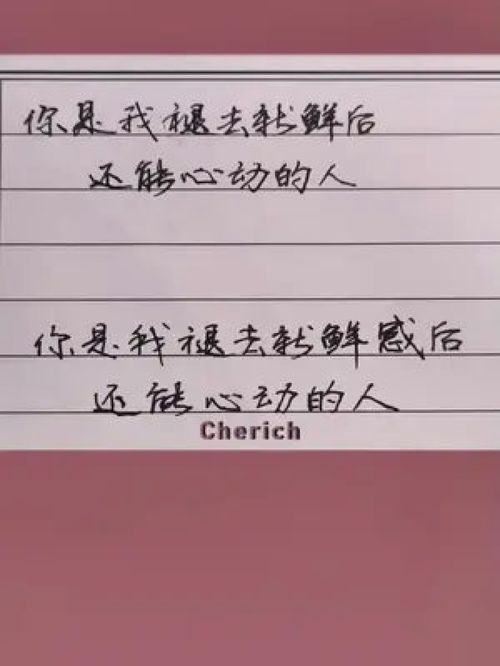 你是我褪去新鲜后
还能心动的人
你是我褪去新鲜感后
还能心动的人
Cherich